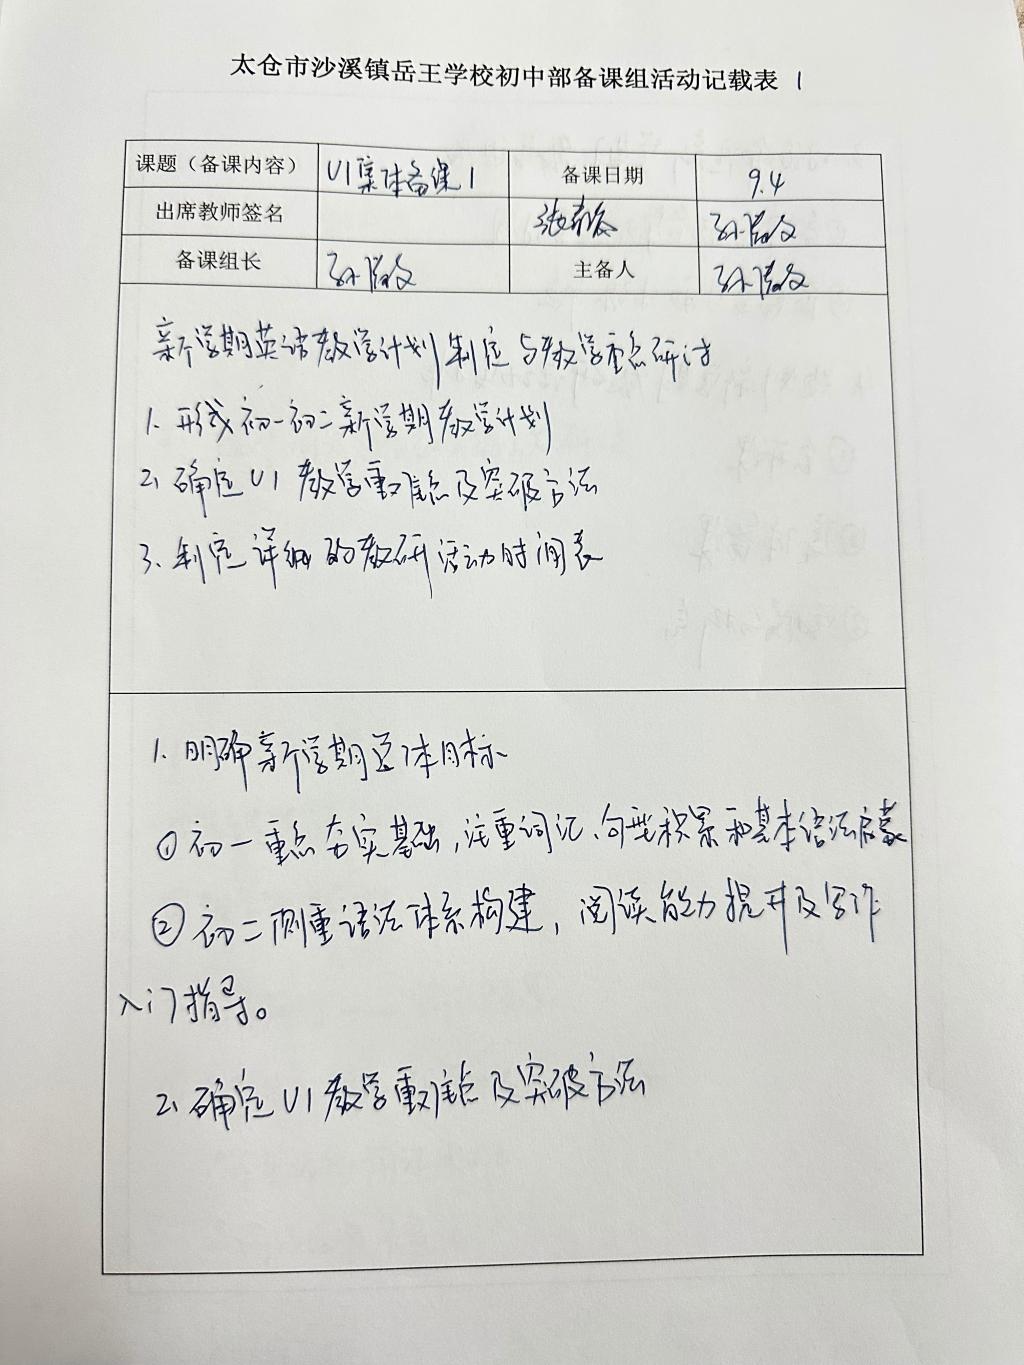 太仓市沙溪镇岳王学校初中部备课组活动记载表 1
课题（备课内容） U1集体备课1 备课日期 9.4
出席教师签名
备课组长 主备人
新学期英语教学计划制定与教学重点研讨
1. 形成初一初二新学期教学计划
2. 确定U1教学重难点及突破方法
3. 制定详细的教研活动时间表
1. 明确新学期总体目标
①初一重点夯实基础，注重词汇、句型积累和基本语法启蒙
②初二侧重语法体系构建，阅读能力提升及写作
入门指导。
2. 确定U1教学重难点及突破方法